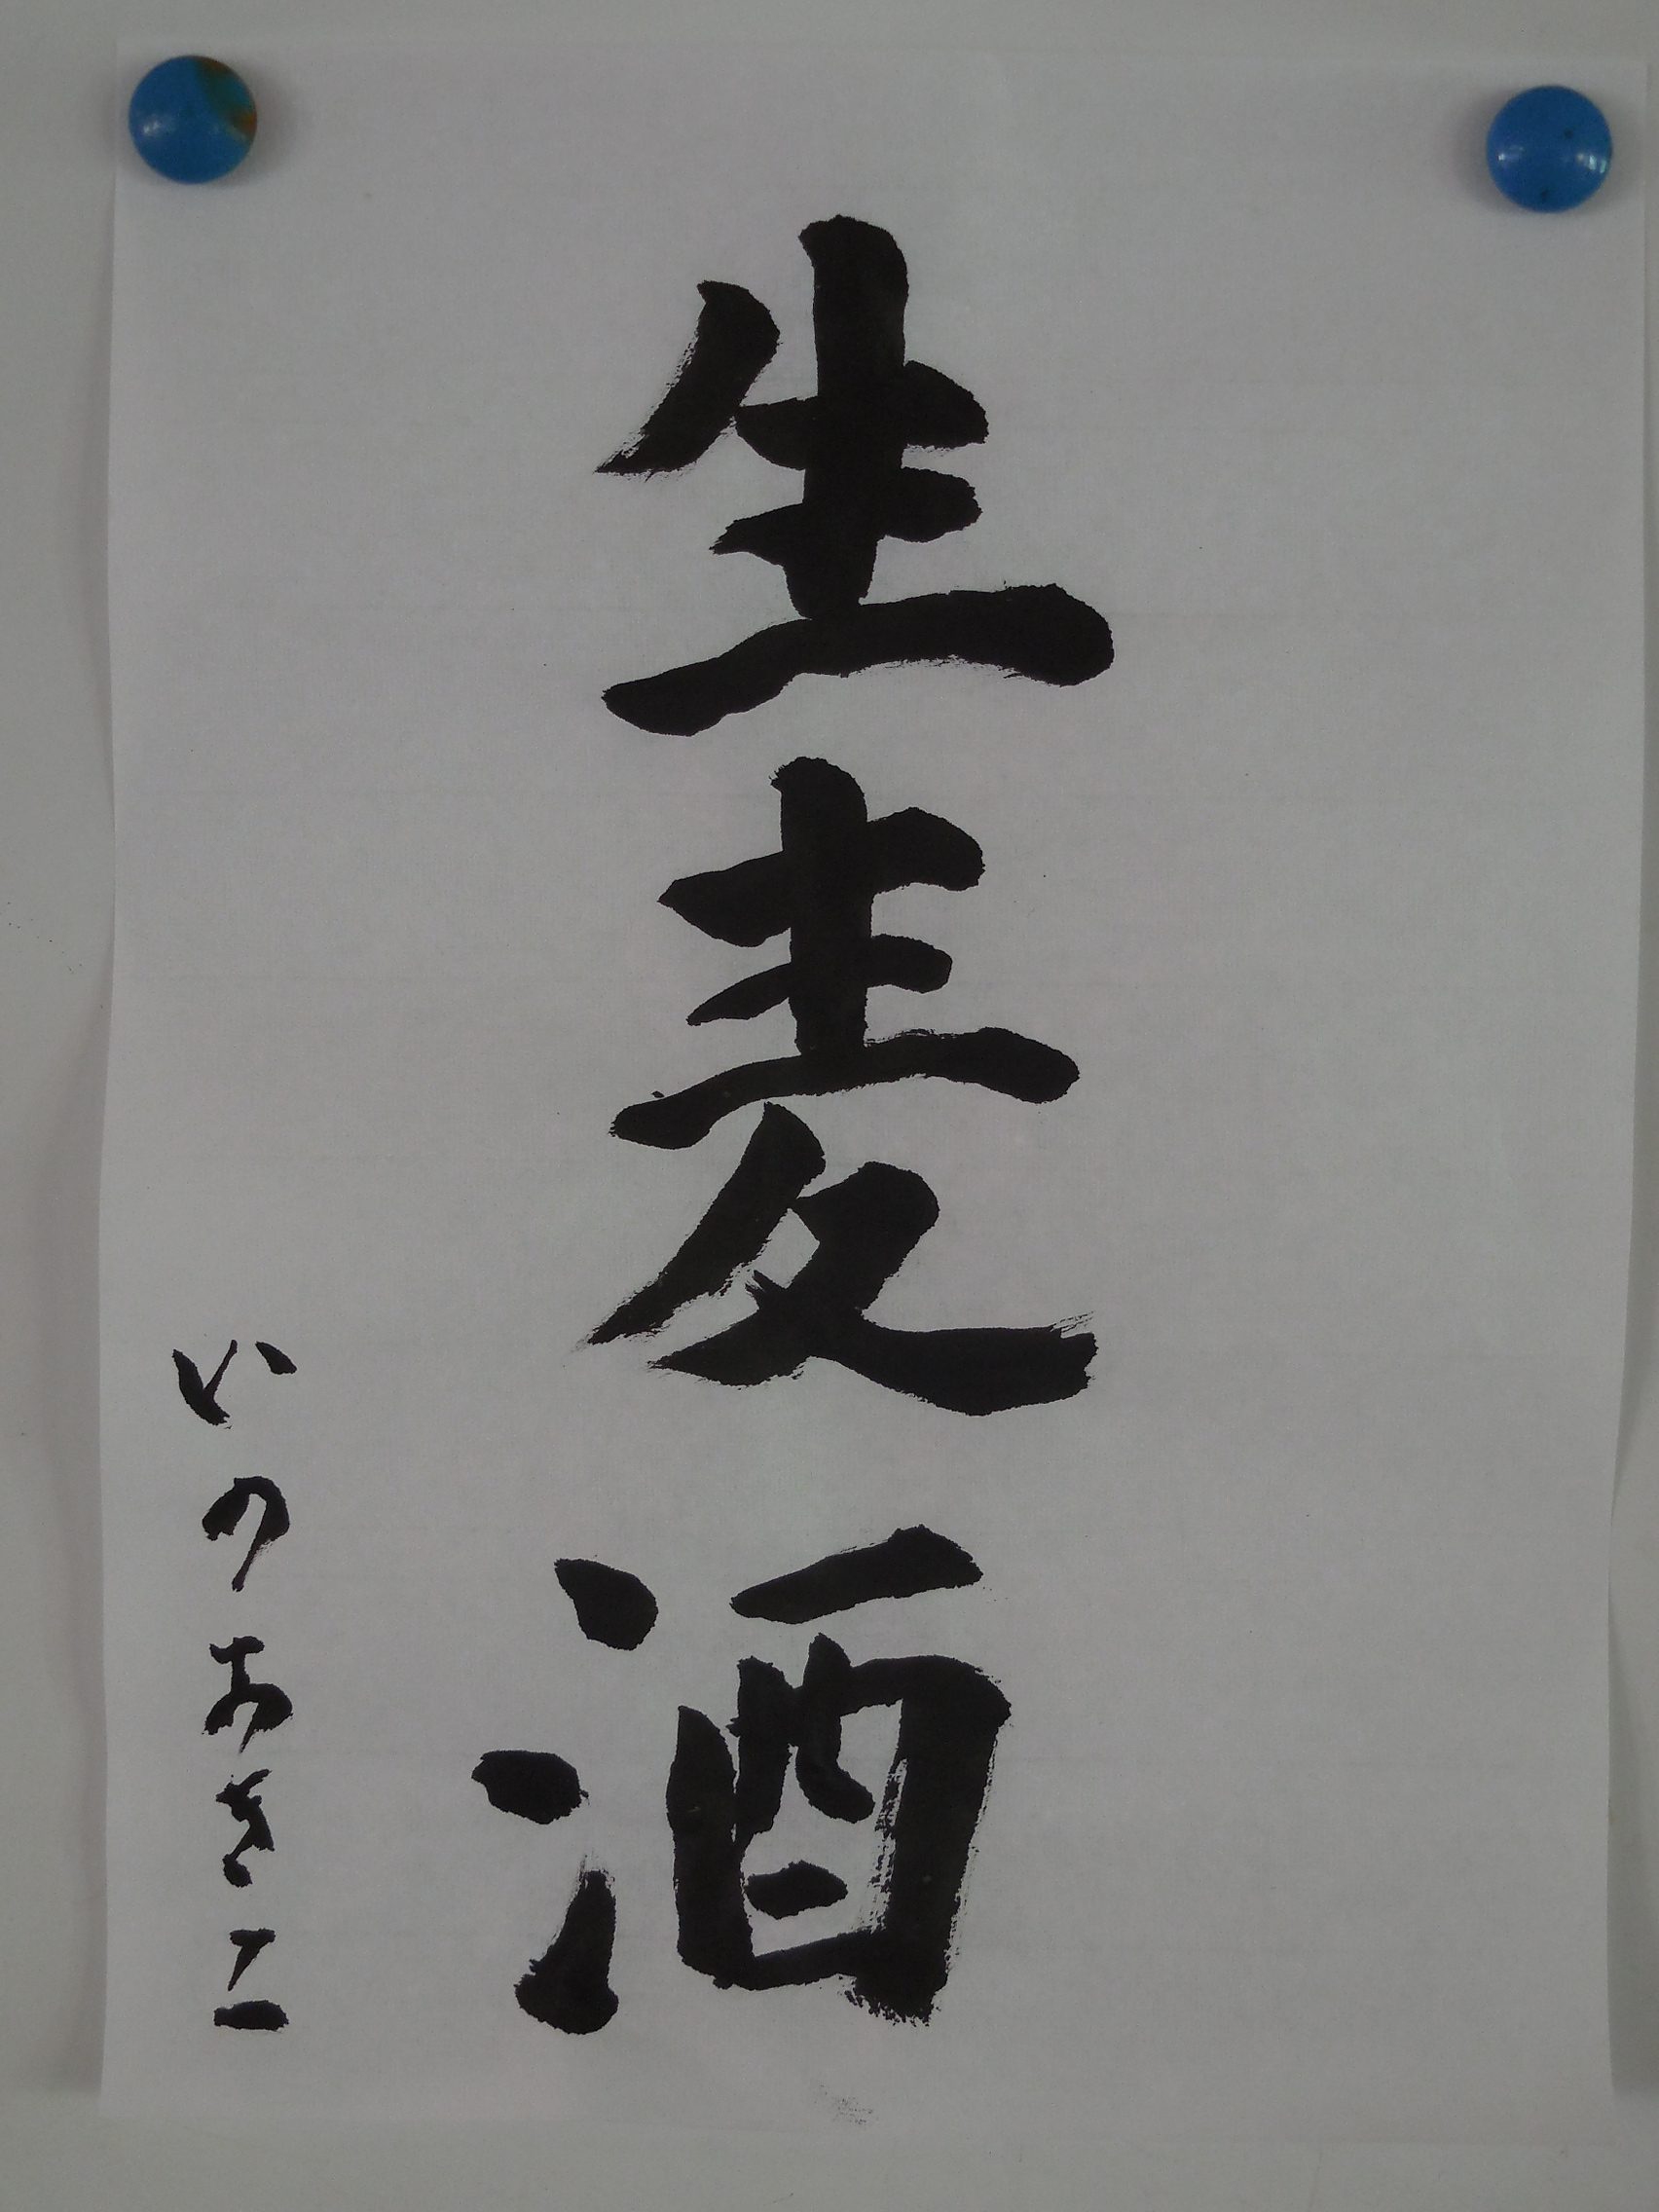 生麦酒
いのあきこ